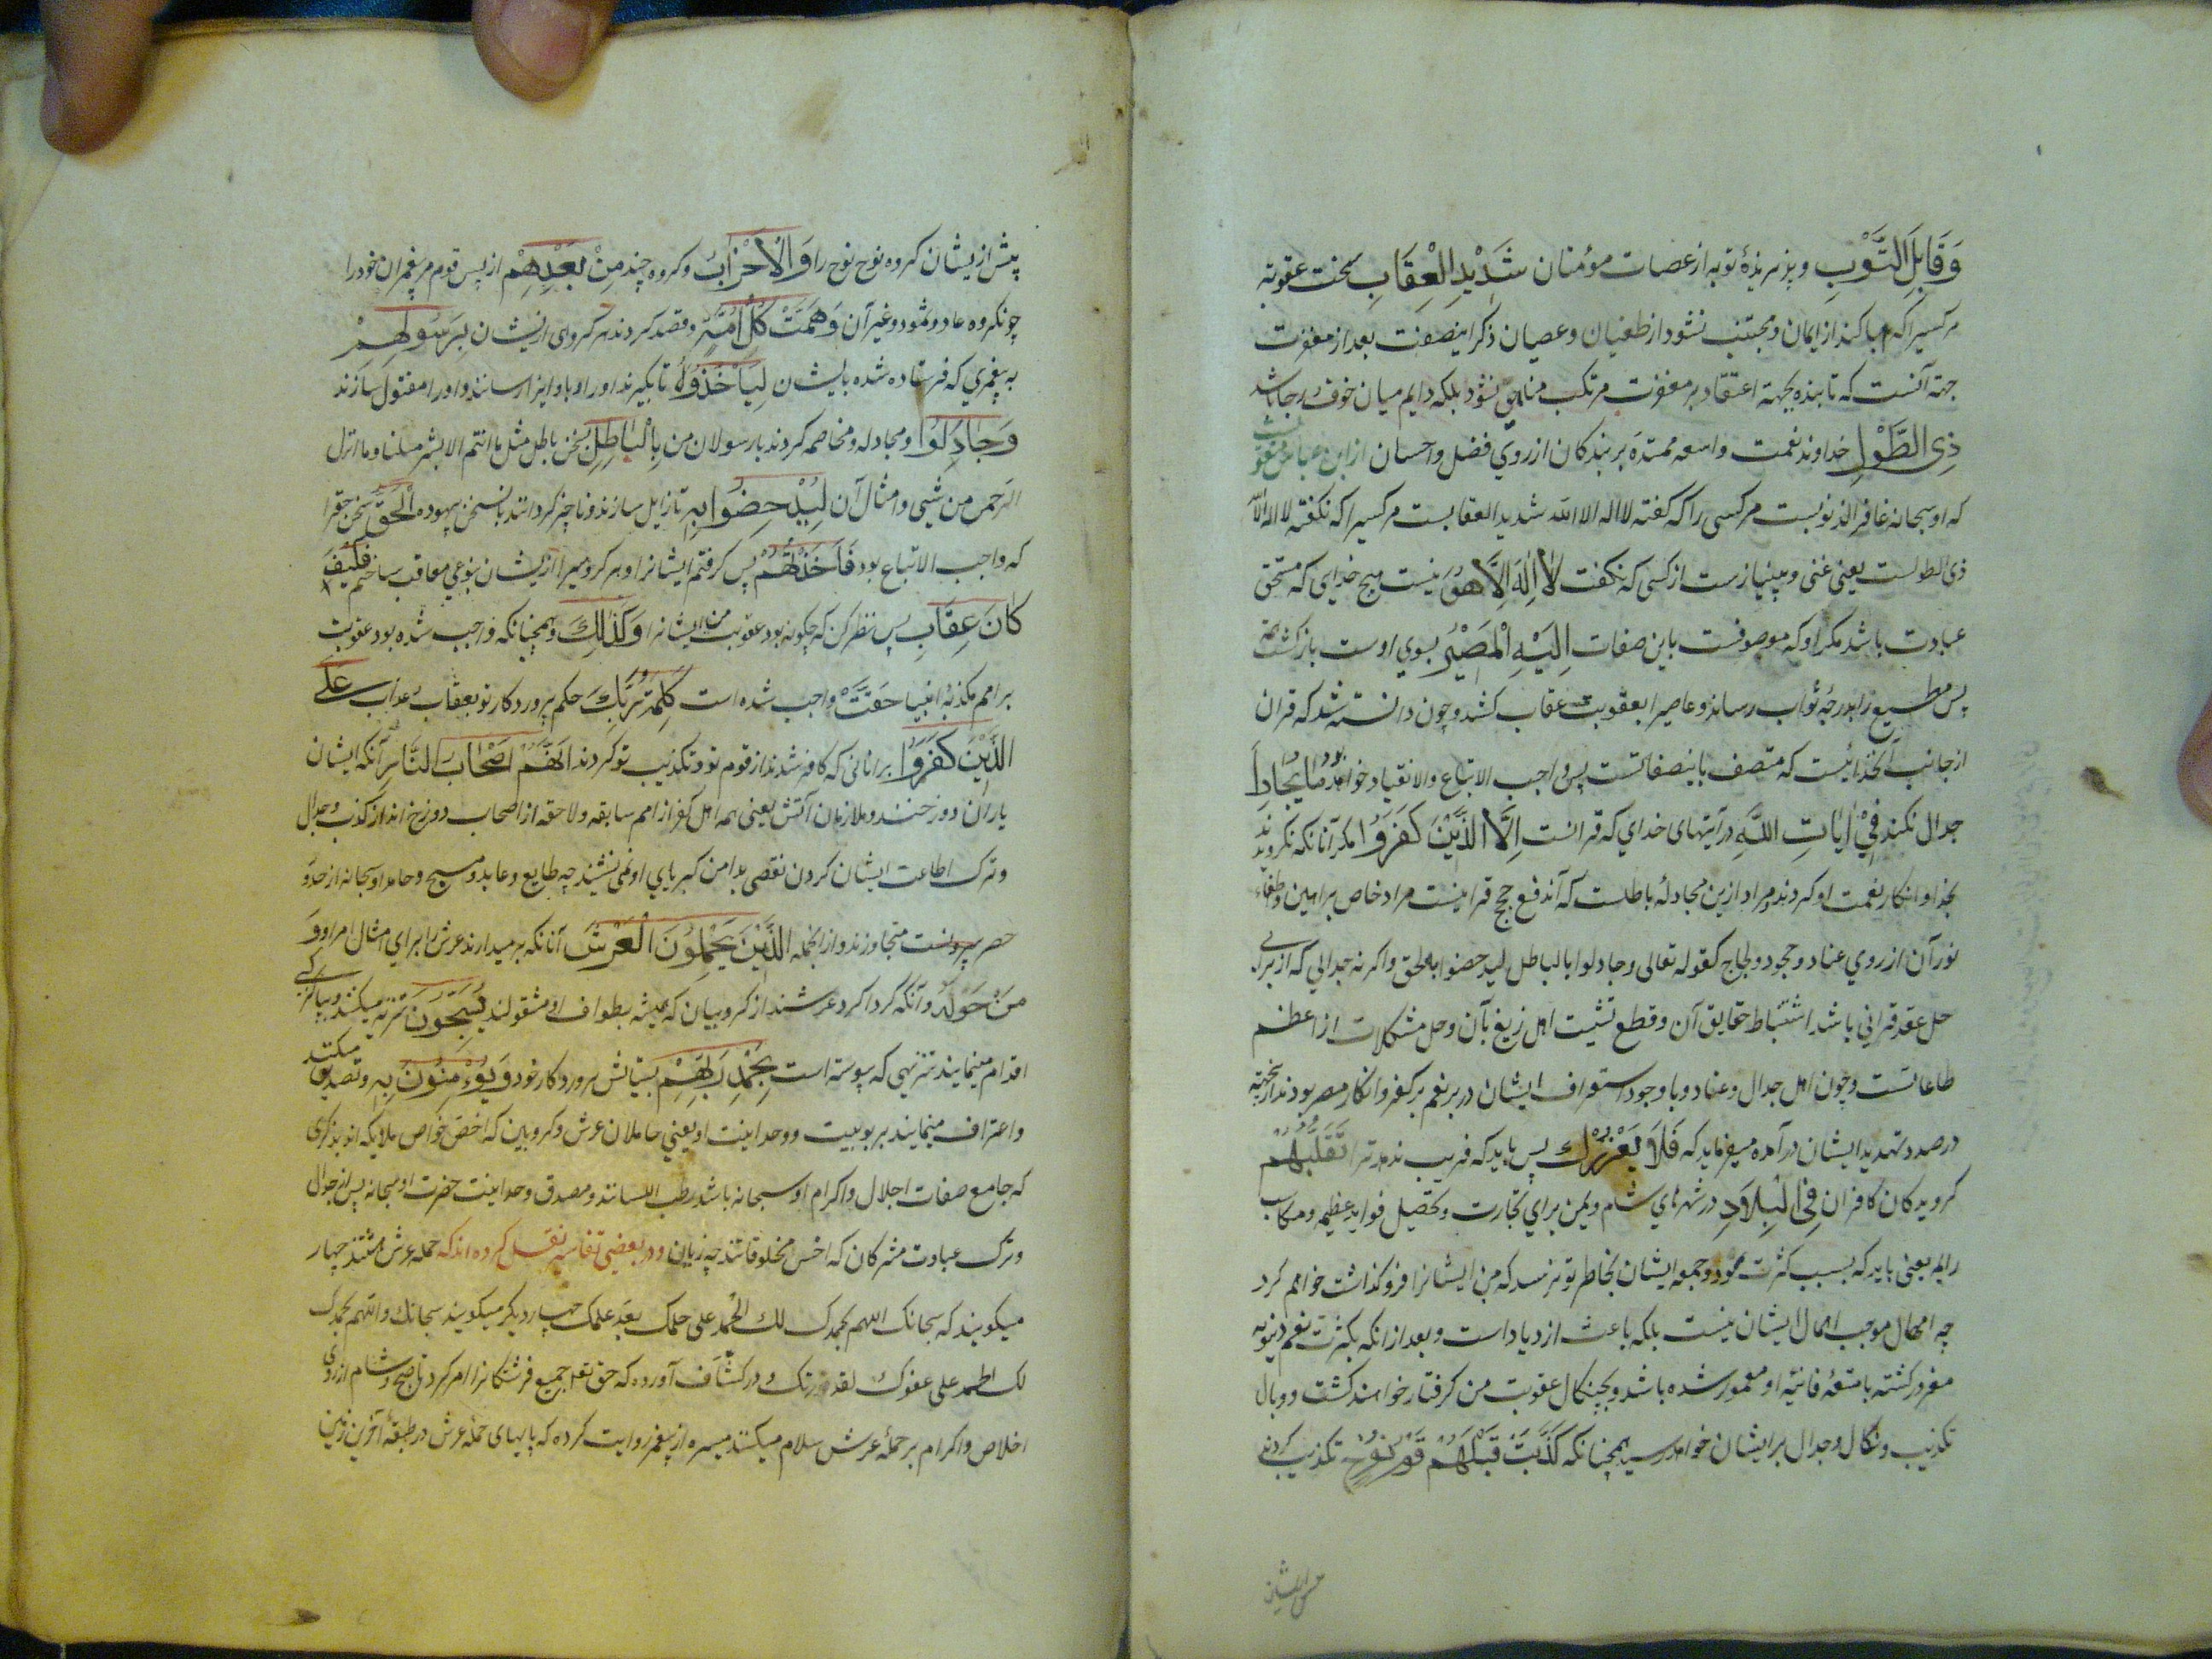 وَقَابِلَ التَّوْبِ وپذیرنده توبه از عصات مؤمنان شَدِيدِ الْعِقَابِ سخت عقوبته
مر کسیرا که ابا کند از ایمان ومجتنب نشود از طغیان وعصیان ذکر اینصفت بعد از مغفرت
جهة آنست که تا بنده بجهة اعتقاد بر مغفرت مرتکب مناهی نشود بلکه دایم میان خوف ورجا باشد
ذِی الطَّوْلِ خداوند نعمت واسعه ممتده بر بندکان از روی فضل واحسان از ابن عباس منقولست
که او سبحانه غافر الذنوبست مر کسی را که کفته لا اله الا الله شدید العقابست مر کسیرا که نکفته لا اله الا الله
ذی الطولست یعنی غنی وبینیازست از کسی که نکفت لَا اِلٰهَ اِلَّا هُوَ نیست هیچ خدای که مستحق
عبادت باشد مکر او که موصوفست باین صفات اِلَیْهِ الْمَصِیْرُ بسوی اوست بازکشت همه
پس مطیع را بدرجهٔ ثواب رساند وعاصیرا بعقوبت عقاب کشد وچون دانسته شد که قران
از جانب آنخدائیست که متصف باینصفاتست پس واجب الاتباع والانقیاد خواهد بود مَا یُجَادِلُ
جدال نکند فِیْ اٰیَاتِ اللّٰهِ در آیتهای خدای که قرانست اِلَّا الَّذِیْنَ کَفَرُوْا مکر آنانکه نکرویدند
بخدا وانکار نعمت او کردند ومراد ازین مجادلهٔ باطلست که آن دفع حجج قرانیست مراد خاص براهین واطفاء
نور آن از روی عناد وجحود ولجاج کقوله تعالی وجادلوا بالباطل لیدحضوا به الحق واکر نه جدالی که از برای
حل عقد قرانی باشد استنباط حقایق آن وقطع تشبث اهل زیغ بآن وحل مشکلات از اعظم
طاعاتست وچون اهل جدال وعناد وبا وجود استغراف ایشان در بر نعم بر کفر وانکار مصر بودند از بجهته
در صدد تهدید ایشان درآمده میفرماید که فَلَا یَغْرُرْكَ پس باید که فریب ندهد ترا تَقَلُّبُهُمْ
کردیدکان کافران فِی الْبِلَادِ در شهرهای شام ویمن برای تجارت وتحصیل فواید عظیمه ومکاسب
رابحه یعنی باید که بسبب کثرت عدد وجمعه ایشان بخاطر تو نرسد که من ایشانرا فروکذاشت خواهم کرد
چه امهال موجب اهمال ایشان نیست بلکه باعث ازدیاد است وبعد از انکه بکثرت نعم دنیویه
مغرور کشته بامتعهٔ فانیه او مغمور شده باشد وبچنکال عقوبت من کرفتار خواهند کشت ووبال
تکذیب ونکال وجدال بر ایشان خواهد رسید همچنانکه کَذَّبَتْ قَبْلَهُمْ قَوْمُ نُوْحٍ تکذیب کردند
پیش از ایشان کروه نوح نوح را وَالْاَحْزَابُ وکروه چند مِنْ بَعْدِهِمْ از پس قوم مر پیغمبران خود را
چونکروه عاد وثمود وغیر آن وَهَمَّتْ کُلُّ اُمَّةٍ وقصد کردند هر کروهی از ایشان بِرَسُوْلِهِمْ
به پیغمبری که فرستاده شده بایشان لِیَأْخُذُوْهُ تا بکیرند او را وباو ایذا رسانند واو را مقتول سازند
وَجَادَلُوْا ومجادله ومخاصمه کردند با رسولان من بِالْبَاطِلِ بسخن باطل مثل ما انتم الا بشر مثلنا وما انزل
الرحمن من شیئ وامثال آن لِیُدْحِضُوْا بِهِ تا زایل سازند وناچیز کردانند بانسخن بیهوده الْحَقَّ سخن حقرا
که واجب الاتباع بود فَاَخَذْتُهُمْ پس کرفتم ایشانرا وهر کروهیرا از ایشان بنوعی معاقب ساختم فَکَیْفَ
کَانَ عِقَابِ پس نظر کن که چکونه بود عقوبت من ایشانرا وَکَذٰلِكَ وهمچنانکه واجب شده بود عقوبت
بر امم مکذبهٔ انبیا حَقَّتْ واجب شده است کَلِمَةُ رَبِّكَ حکم پروردکار تو بعقاب وعذاب عَلَی
الَّذِیْنَ کَفَرُوْا بر انانی که کافر شدند از قوم تو وتکذیب تو کردند اَنَّهُمْ اَصْحَابُ النَّارِ آنکه ایشان
یاران دوزخند وملازمان آتش یعنی همه اهل کفر از امم سابقه ولاحقه از اصحاب دوزخ اند از کذب وجدال
وترک اطاعت ایشان کردن نقصی بدامن کبریای او نمی نشیند چه طایع وعابد ومسبح وحامد او سبحانه از حد و
حصر بیرونست متجاوزند وازانجمله الَّذِیْنَ یَحْمِلُوْنَ الْعَرْشَ آنانکه برمیدارند عرش را برای امتثال امر او وَ
مَنْ حَوْلَهُ وآنکه کرداکرد عرشند از کروبیان که همیشه بطواف او مشغولند یُسَبِّحُوْنَ تنزیه میکنند وبپاکی
اقدام مینمایند تنزیهی که پیوسته است بِحَمْدِ رَبِّهِمْ بستایش پروردکار خود وَیُؤْمِنُوْنَ بِهِ وتصدیق میکنند
واعتراف مینمایند بربوبیت ووحدانیت او یعنی حاملان عرش وکروبین که اخص خواص ملایکه اند بذکری
که جامع صفات اجلال واکرام او سبحانه باشد رطب اللسانند ومصدق وحدانیت حضرت او سبحانه پس از جدال
وترک عبادت مشرکان که اخس مخلوقاتند چه زیان ودر بعضی تفاسیر نقل کرده اند که حمله عرش هشتند چهار
میکویند که سبحانک اللهم بحمدک لك الحمد علی حلمك بعد علمك چهار دیکر میکویند سبحانك واللهم بحمدک
لك الحمد علی عفوك لقدرتك ودر کشاف آورده که حق تعالی جمیع فرشتکانرا امر کرد تا صبح وشام از روی
اخلاص واکرام بر حملهٔ عرش سلام میکنند میسره از پیغمبر روایت کرده که پایهای حمله عرش در طبقهٔ آخرین زمین